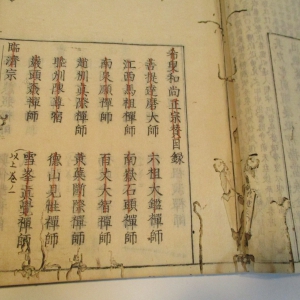 希叟和尚正宗賛目録
菩提達磨大師　六祖大鑑禪師
江西馬祖禪師　南嶽石頭禪師
南泉願禪師　百丈大智禪師
趙州真際禪師　黄檗斷際禪師
睦州陳尊宿　德山見性禪師
巖頭奯禪師　雪峯真覺禪師
以上卷ノ一
臨濟宗